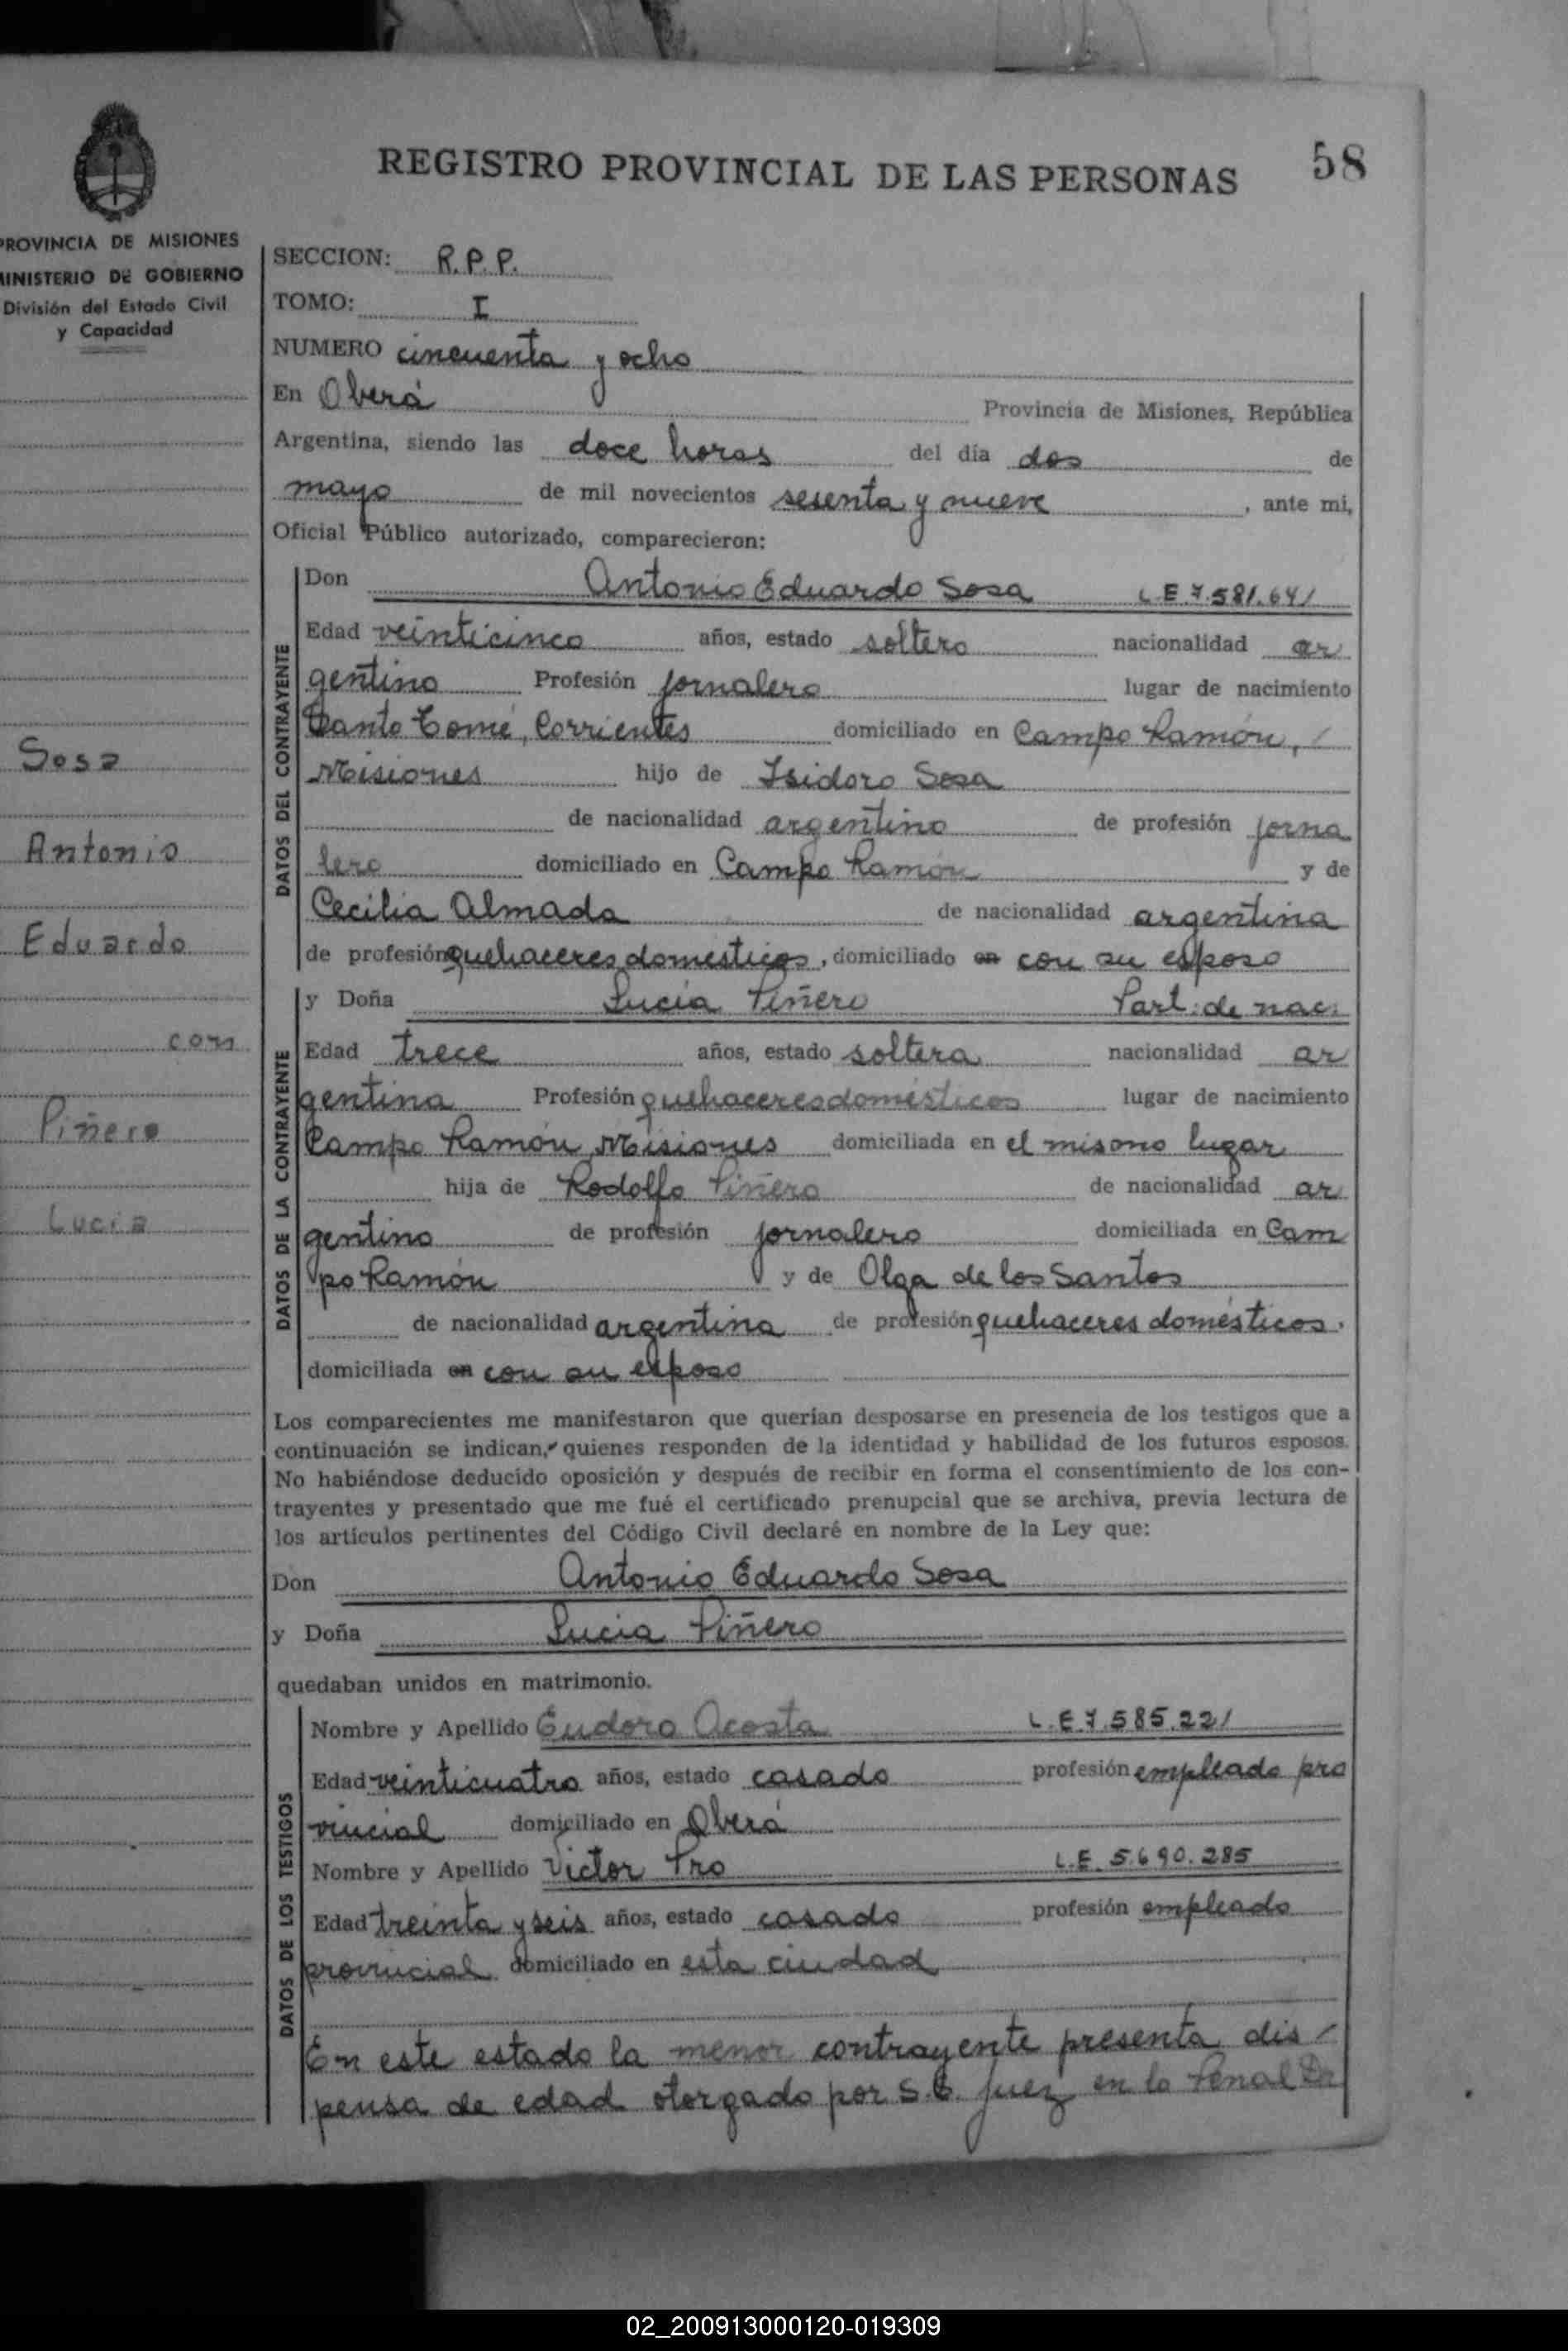 REGISTRO PROVINCIAL DE LAS PERSONAS 58
PROVINCIA DE MISIONES
MINISTERIO DE GOBIERNO
División del Estado Civil
y Capacidad
Sosa
Antonio
Eduardo
con
Piñero
Lucia
SECCION: R.P.P.
TOMO: I
NUMERO cincuenta y ocho
En Oberá Provincia de Misiones, República
Argentina, siendo las doce horas del día dos de
mayo de mil novecientos sesenta y nueve, ante mi,
Oficial Público autorizado, comparecieron:
DATOS DEL CONTRAYENTE
Don Antonio Eduardo Sosa L.E.7.581.641
Edad veinticinco años, estado soltero nacionalidad ar
gentino Profesión jornalero lugar de nacimiento
Santo Tomé, Corrientes domiciliado en Campo Ramón,
Misiones hijo de Isidoro Sosa
de nacionalidad argentino de profesión jorna
lero domiciliado en Campo Ramón y de
Cecilia Almada de nacionalidad argentina
de profesión quehaceres domésticos, domiciliado en con su esposo
DATOS DE LA CONTRAYENTE
y Doña Lucía Piñero Part. de nac.
Edad trece años, estado soltera nacionalidad ar
gentina Profesión quehaceres domésticos lugar de nacimiento
Campo Ramón, Misiones domiciliada en el misono lugar
hija de Rodolfo Piñero de nacionalidad ar
gentino de profesión jornalero domiciliada en Cam
po Ramón y de Olga de los Santos
de nacionalidad argentina de profesión quehaceres domésticos.
domiciliada en con su esposo
Los comparecientes me manifestaron que querían desposarse en presencia de los testigos que a
continuación se indican, quienes responden de la identidad y habilidad de los futuros esposos.
No habiéndose deducido oposición y después de recibir en forma el consentimiento de los con-
trayentes y presentado que me fué el certificado prenupcial que se archiva, previa lectura de
los artículos pertinentes del Código Civil declaré en nombre de la Ley que:
Don Antonio Eduardo Sosa
y Doña Lucía Piñero
quedaban unidos en matrimonio.
DATOS DE LOS TESTIGOS
Nombre y Apellido Eudoro Acosta L.E.7.585.221
Edad veinticuatro años, estado casado profesión empleado pro
vincial domiciliado en Oberá
Nombre y Apellido Victor Pro L.E. 5.690.285
Edad treinta y seis años, estado casado profesión empleado
provincial domiciliado en esta ciudad
En este estado la menor contrayente presenta dis
pensa de edad otorgado por S.S. juez en lo Penal Dr
02_200913000120-019309